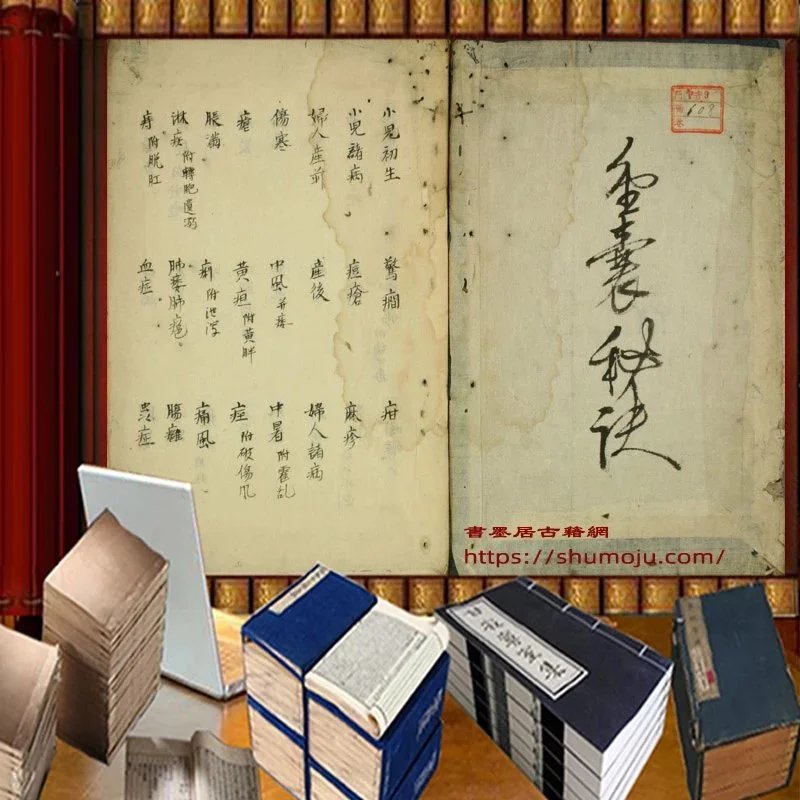 囊秘訣
小児初生 驚癇 疳
小児諸病 痘瘡 麻疹
婦人産前 産後 婦人諸病
傷寒 中風 中暑 附霍乱
瘧 黄疸 附黄胖 痙 附破傷風
脹満 痢 附泄瀉 痛風
淋疾 附轉胞遺溺 肺痿肺癰 腸癰
痔 附脱肛 血症
書墨居古籍網
https://shumoju.com/